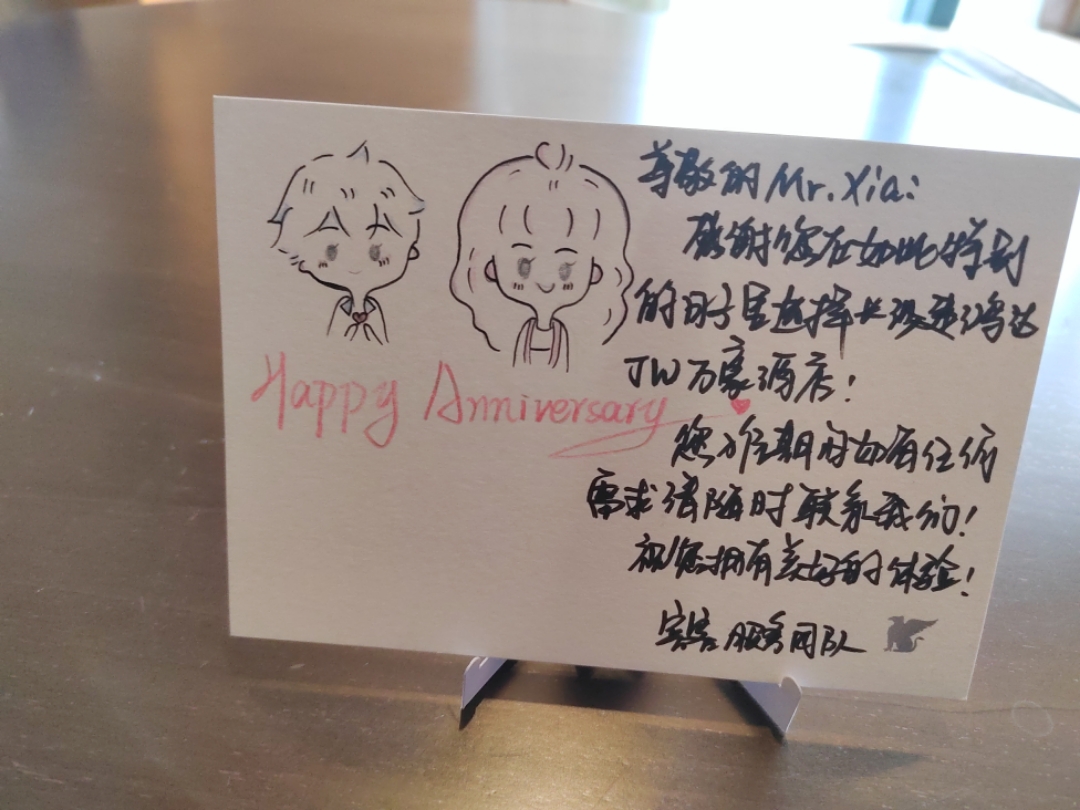 尊敬的 Mr. Xia:
感谢您在如此特别
的日子里选择长沙建鸿达
JW万豪酒店!
Happy Anniversary
您 期间如有任何
需求请随时联系我们!
祝您拥有美好的体验!
宾客服务团队